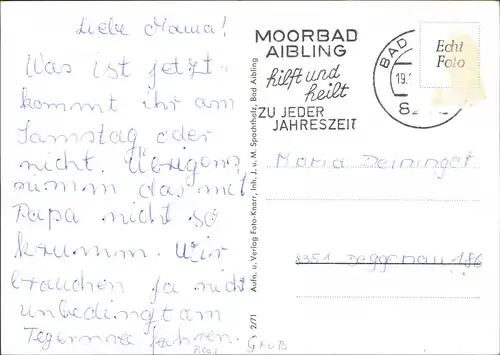 Liebe Mama!
Was ist jetzt
kommt ihr am
Samstag oder
nicht. Übrigens
nimm das mit
Papa nicht so
krumm. Wir
brauchen ja nicht
unbedingt am
Tegernsee fahren.
Gruß
MOORBAD
AIBLING
hilft und
heilt
ZU JEDER
JAHRESZEIT
BAD
19.
82
Echt
Foto
Aufn. u. Verlag Foto-Knarr, Inh. J. u. M. Spachtholz, Bad Aibling
2/71
Maria Deininger
8351 Deggenau 186